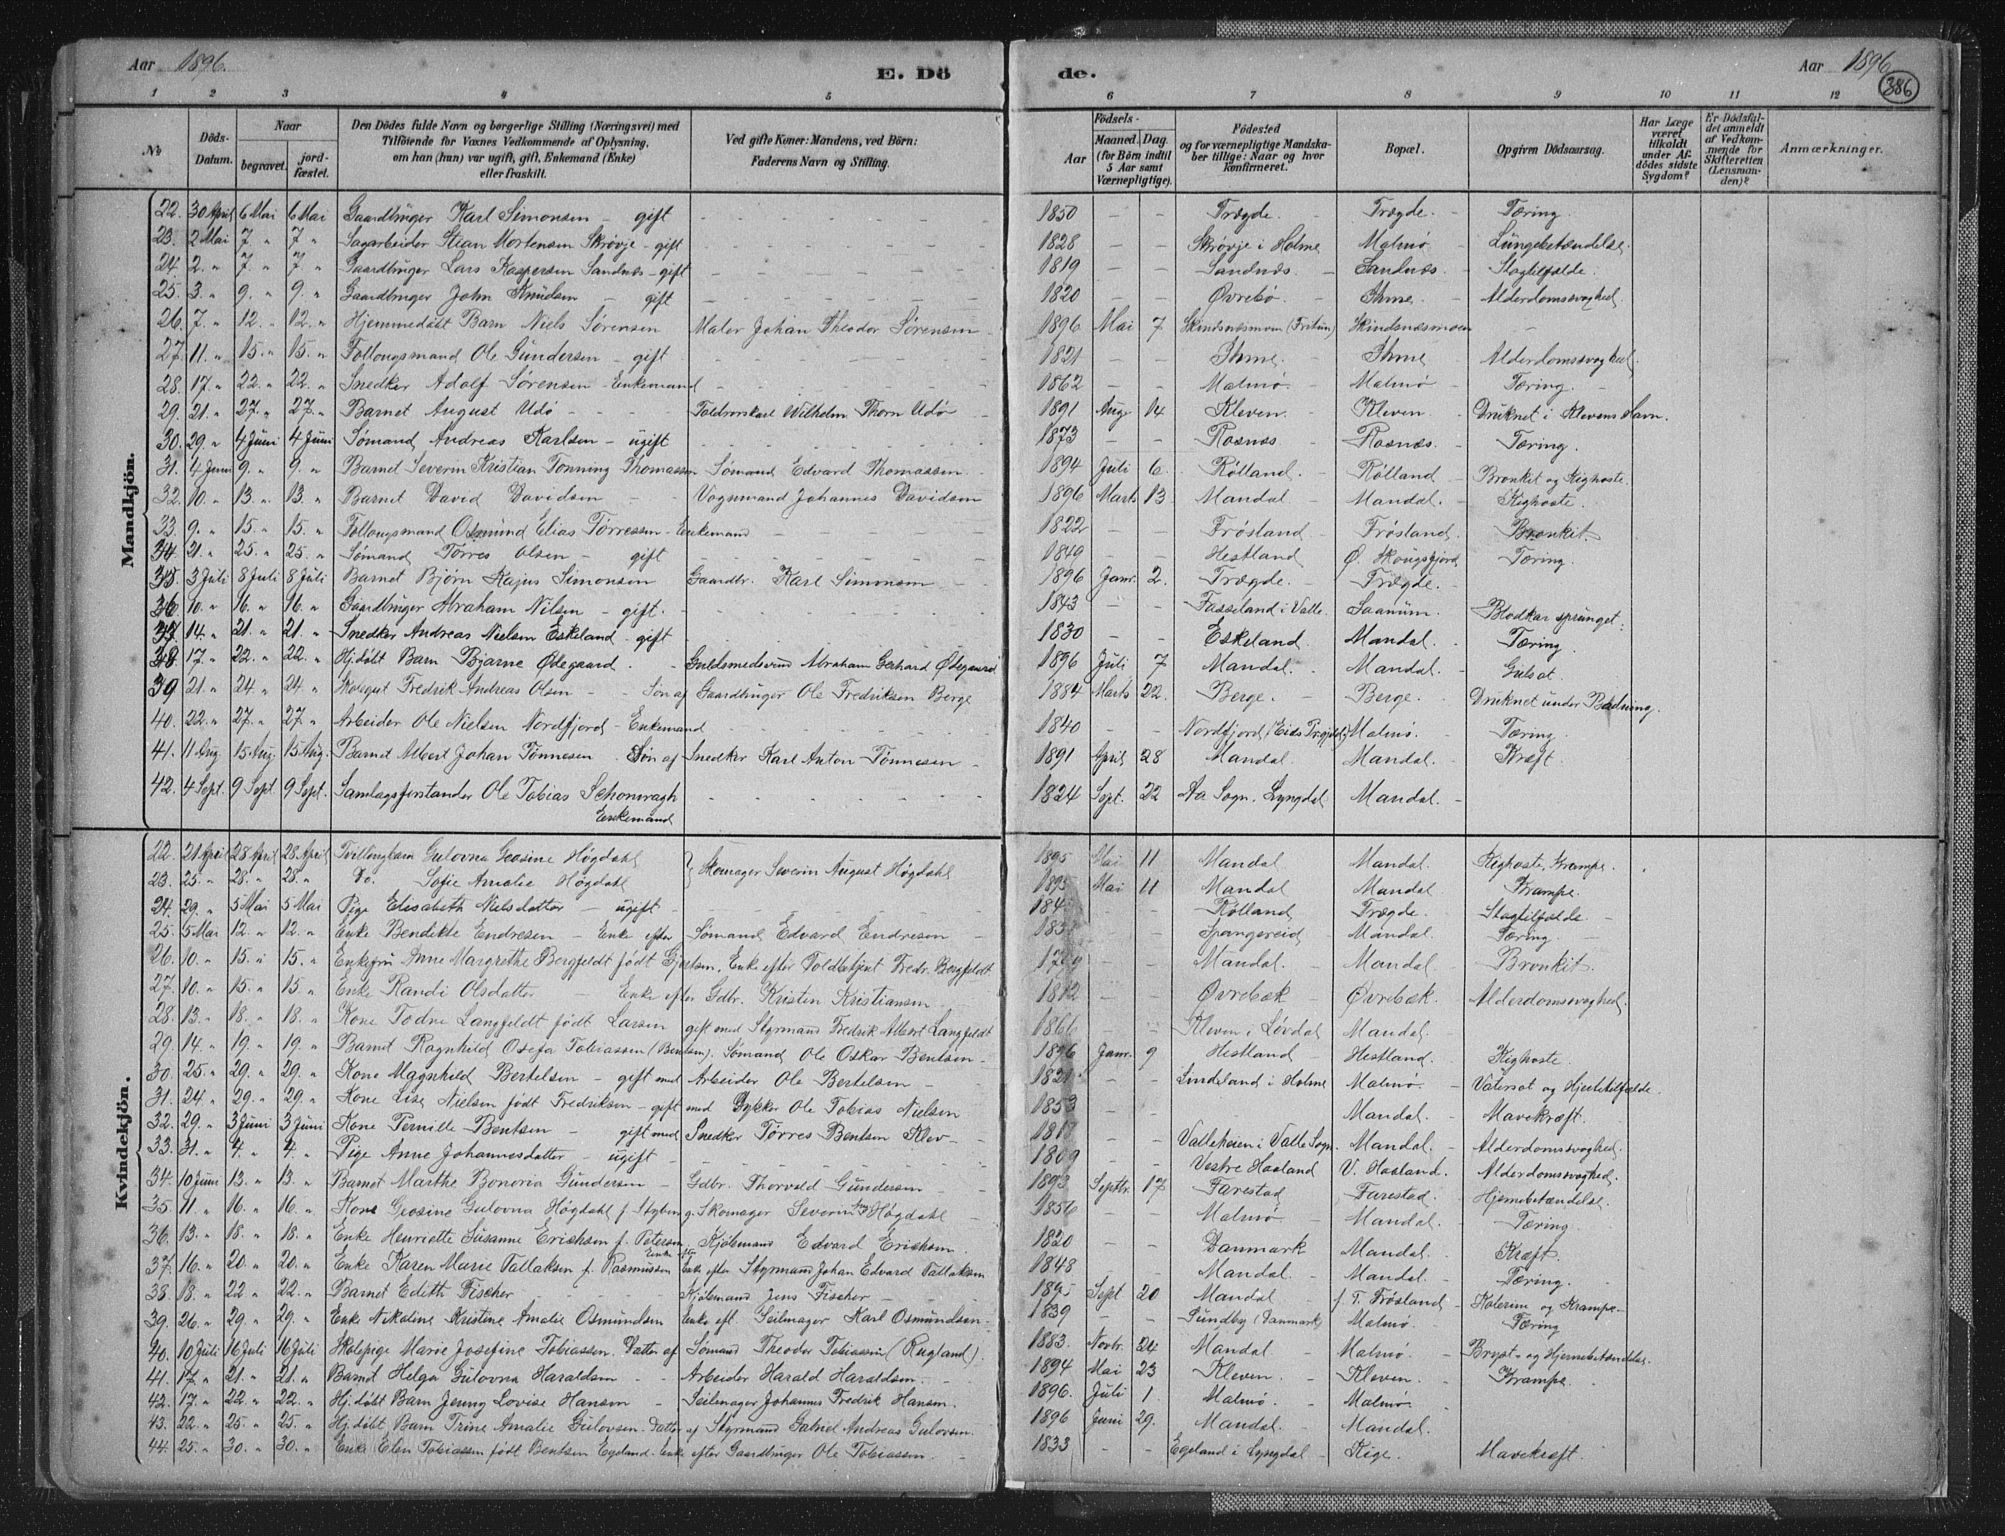 Aar 1896. E. Dö de. Aar 1896
386
1 2 3 4 5 6 7 8 9 10 11 12
No Döds-Datum. Naar begravet. jord-fæstet. Den Dödes fulde Navn og borgerlige Stilling (Næringsvei) med Tilföiende for Voxnes Vedkommende af Oplysning, om han (hun) var ugift, gift, Enkemand (Enke) eller fraskilt. Ved gifte Koner: Mandens, ved Börn: Faderens Navn og Stilling. Födsels- Aar Maaned. Dag. (for Börn indtil 5 Aar samt Værnepligtige). Födested og for værnepligtige Mandskaber tillige: Naar og hvor konfirmeret. Bopæl. Opgiven Dödsaarsag. Har Læge været tilkaldt under Afdödes sidste Sygdom? Er Dødsfaldet anmeldt af Vedkommende for Skifteretten (Lensmanden)? Anmærkninger.
Mandkjön.
22. 30 April 6 Mai 6 Mai Gaardbruger Karl Simonsen - gift - 1850 - - Trægde. Trægde. Tæring.
23. 2 Mai 7 " 7 " Sagarbeider Stian Mortensen Skrøvje - gift - 1828 - - Skrøvje i Holme Malmø Lungebetændelse.
24. 2. " 7 " 7 " Gaardbruger Lars Kaspersen Sandnes - gift - 1819 - - Sandnes - Sandnes. Slagtilfælde.
25. 3. " 9. " 9. " Gaardbruger John Knudsen - gift - 1820 - - Øvrebø. Ihme. Alderdomssvaghed.
26. 7. " 12. " 12. " Hjemmedøbt Barn Niels Sørensen Maler Johan Theodor Sørensen 1896 Mai 7 Skindsnæsmoen (Fritun) Skindsnæsmoen -
27. 11. " 15. " 15. " Follougsmand Ole Gundersen - gift - 1821 - - Ihme. Ihme Alderdomssvaghed.
28. 17. " 22. " 22. " Snedker Adolf Sørensen - Enkemand - 1862 - - Malmø. Malmø Tæring.
29. 21. " 27. " 27. " Barnet August Udø - Toldrorskarl Wilhelm Thorn Udø 1891 Aug. 14 Kleven. Kleven Druknet i Klevens Havn.
30. 29. " 4 Juni 4 Juni Sømand Andreas Karlsen - ugift - 1873 - - Rosnæs Rosnæs. Tæring.
31. 4 Juni 9. " 9. " Barnet Severin Kristian Tønning Thomassen Sømand Edvard Thomassen 1894 Juli 6. Rølland. Rølland Bronkit og Kighoste.
32. 10. " 13. " 13. " Barnet David Davidsen - Vognmand Johannes Davidsen 1896 Marts 13. Mandal. Mandal. Kighoste.
33. 9. " 15. " 15. " Follougsmand Osmund Elias Tørressen - Enkemand - 1822 - - Frøsland - Frøsland. Bronkit.
34. 21. " 25. " 25. " Sømand Tørres Olsen - gift - 1849 - - Hestland Ø. Skougsfjord Tæring.
35. 3 Juli 8 Juli 8 Juli Barnet Bjørn Kajus Simonsen Gaardbr. Karl Simonsen 1896 Janr. 2. Trægde. Trægde.
36. 10. " 16. " 16. " Gaardbruger Abraham Nilsen - gift. 1843 - - Fasseland i Valle. Saanum. Blodkar sprunget.
37. 14. " 21. " 21. " Snedker Andreas Nielsen Eskeland - gift - 1830 - - Eskeland. Mandal. Tæring.
38. 17. " 22. " 22. " Hj. døbt Barn Bjarne Ødegaard. Guldsmedsvend Abraham Gerhard Ødegaard 1896 Juli 7 Mandal. Mandal. Gulsot.
39 21. " 24. " 24. " Skolegut Fredrik Andreas Olsen - Søn af Gaardbruger Ole Fredriksen Berge 1884 Marts 22. Berge. Berge. Druknet under Badning.
40. 22. " 27. " 27. " Arbeider Ole Nielsen Nordfjord - Enkemand 1840 - - Nordfjord (Eids Præstegj.) Malmø. Tæring.
41. 11 Aug. 15 Aug. 15 Aug. Barnet Albert Johan Tønnesen Søn af Snedker Karl Anton Tønnesen - 1891 April 28 Mandal. Mandal. Kræft.
42. 4 Sept. 9 Sept. 9 Sept. Samlagsforstander Ole Tobias Schonvagh Enkemand - 1824 Sept. 22 Aa Sogn, Lyngdal Mandal.
Kvindekjön.
22. 21 April 28 April 28 April Tvillingbarn Gulovna Geosine Høgdahl } Skomager Severin August Høgdahl 1895 Mai 11 Mandal Mandal. Kighoste, Krampe.
23. 25. " 28. " 28. " Do. Sofie Amalie Høgdahl 1895 Mai 11 Mandal Mandal Krampe.
24. 29. " 5 Mai 5 Mai Pige Elisabeth Nielsdatter - ugift - - - Rølland Trægde. Slagtilfælde
25. 5 Mai 12. " 12. " Enke Bendikte Endresen - Enke efter Sømand Edvard Endresen - - - Spangereid Mandal Tæring.
26. 10. " 15. " 15. " Enkefru Anne Margrethe Bergfeldt født Gjertsen, Enke efter Toldbetjent Fredr. Bergfeldt - - Mandal. Mandal. Bronkit.
27. 10. " 15. " 15. " Enke Randi Olsdatter - Enke efter Gdbr. Kristen Kristiansen 1812 - - Øvrebæk Øvrebæk. Alderdomssvaghed.
28. 13. " 18. " 18. " Kone Todne Langfeldt født Larsen gift med Styrmand Fredrik Albert Langfeldt 1866 - - Kleven i Løvdal Mandal -
29. 14. " 19. " 19. " Barnet Ragnhild Osefa Tobiassen (Bentsen). Sømand Ole Oskar Bentsen - 1896 Janr. 9 Hestland - Hestland. Kighoste.
30. 25. " 29. " 29. " Kone Magnhild Bertelsen - gift med Arbeider Ole Bertelsen - 1821 - - Lindeland i Holme Malmø. Vatersot og Hjertetilfælde.
31. 24. " 29. " 29. " Kone Lise Nielsen født Fredriksen - gift med Dykker Ole Tobias Nielsen 1853 - - Mandal. Mavekræft.
32. 29. " 3 Juni 3 Juni Kone Pernille Bentsen - gift med Snedker Tørres Bentsen Klev - - - Valleheien i Valle Sogn. Mandal. Alderdomssvaghed.
33. 31. " 4. " 4. " Pige Anne Johannesdatter - ugift - 1809 - - Vestre Haaland V. Haaland. Alderdomssvaghed.
34. 10 Juni 13. " 13. " Barnet Marthe Bonoria Gundersen - Gdbr. Thorvald Gundersen 1893 Septbr. 17 Farestad Farestad. Hjernebetændelse.
35. 11. " 16. " 16. " Kone Geosine Gulovna Høgdahl f. g. Skomager Severin Aug. Høgdahl - 1856 - - Malmø Mandal. Tæring.
36. 13. " 18. " 18. " Enke Henriette Susanne Erichsen f. Petersen Enke efter Kjøbmand Edvard Erichsen. 1820 - - Danmark Mandal. Kræft.
37. 16. " 20. " 20. " Enke Karen Marie Tallaksen f. Rasmussen Enke efter Styrmand Johan Edvard Tallaksen 1848 - - Mandal. Mandal. Tæring.
38. 18. " 22 " 22. " Barnet Edith Fischer Kjøbmand Jens Fischer 1895 Sept 20 Mandal f. T. Frøsland Katerine og Krampe -
39. 26. " 29. " 29. " Enke Nikoline Kristine Amalie Osmundsen Enke eft. Seilmager Karl Osmundsen. 1839 - - Sundby (Danmark) Malmø. Tæring
40. 10 Juli 16 Juli 16 Juli Skolepige Marie Josefine Tobiassen. Datter af Sømand Theodor Tobiassen (Rugland). 1883. Novbr. 24 Mandal Malmø. Bryst- og Hjernebetændelse.
41. 17. " 21. " 21. " Barnet Helga Gulovna Haraldsen - Arbeider Harald Haraldsen. 1894 Mai 23 Kleven. Kleven. Krampe.
42. 17. " 22. " 22. " Hj. døbt Barn Jenny Lovise Hansen - Seilmager Johannes Fredrik Hansen. 1896. Juli 1. Malmø. Malmø.
43. 22. " 25. " 25. " Hj. døbt Barn Trine Amalie Gulovsen. Datter af Styrmand Gabriel Andreas Gulovsen. 1896 Juni 29. Mandal. Mandal.
44. 25. " 30. " 30. " Enke Elen Tobiassen født Bentsen Egeland. Enke efter Gaardbruger Ole Tobiassen. 1833 - - Egeland i Lyngdal Kige. Mavekræft